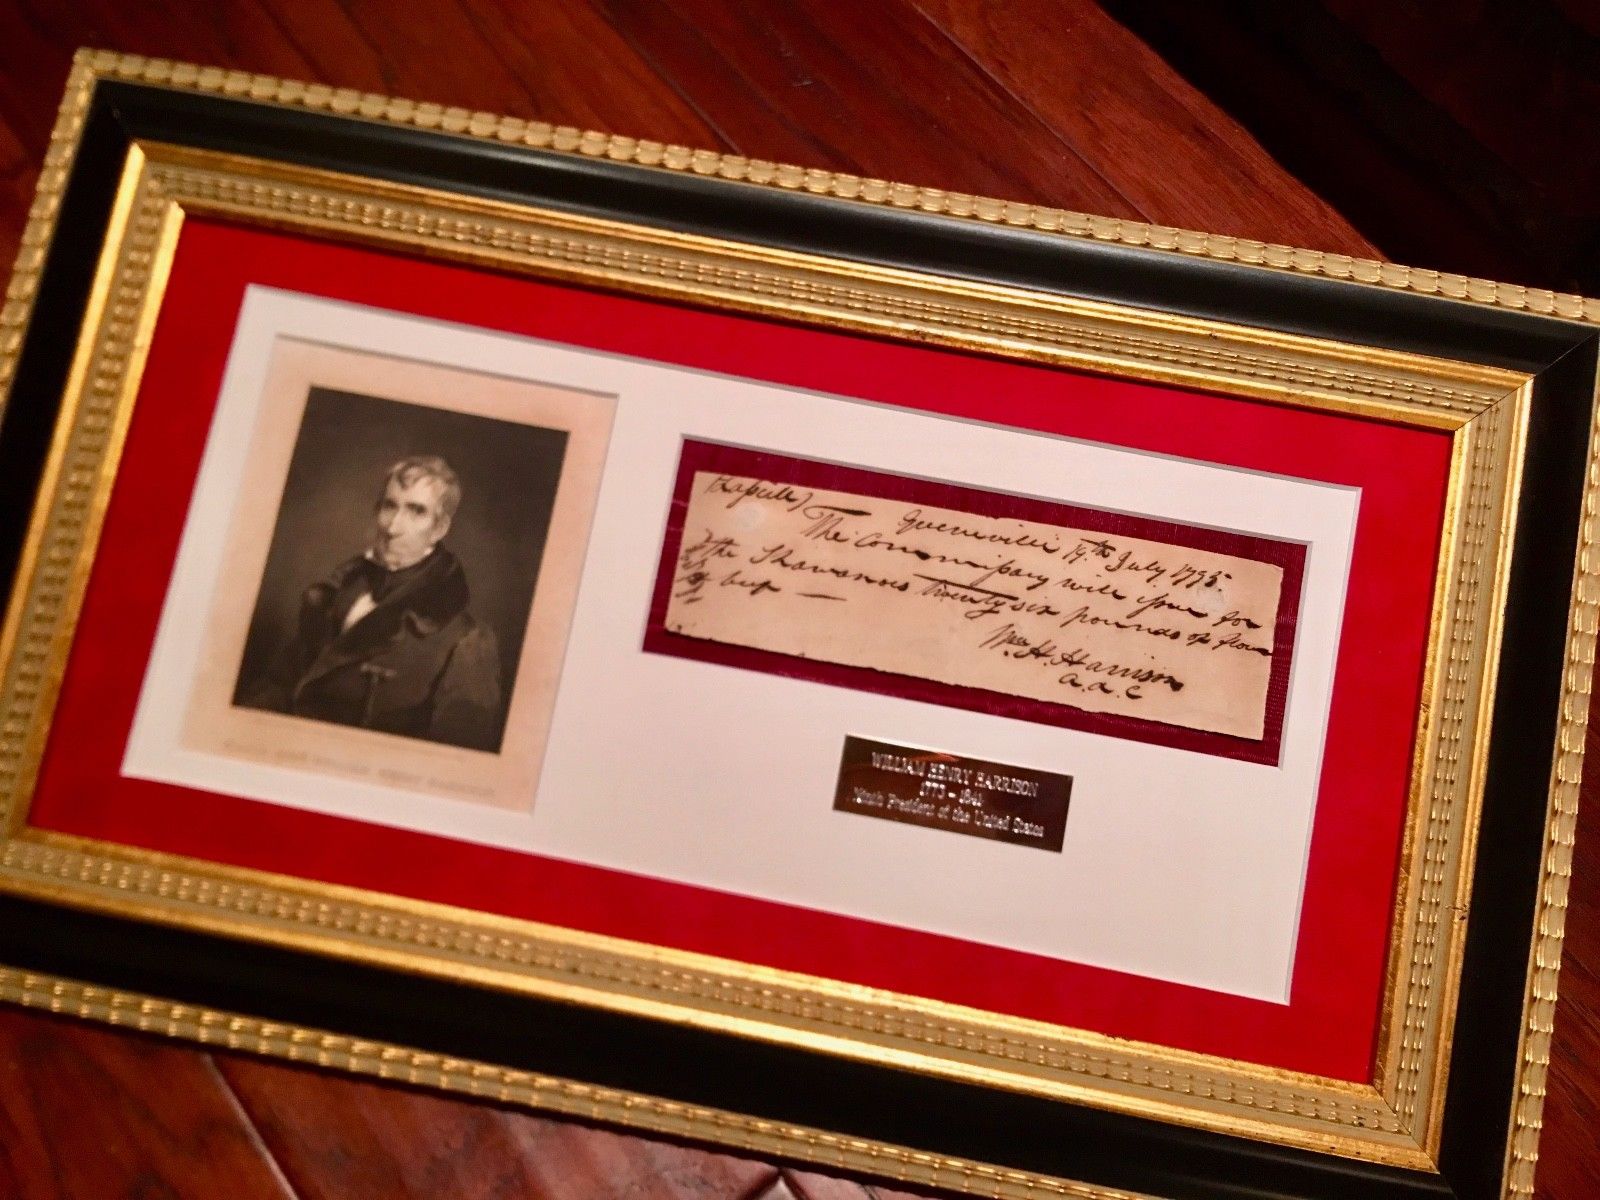 Greeneville 19th July 1795
The Commissary will issue for
the Shawanoes twenty six pounds of flour
& beef —
Wm. H. Harrison
a.a.c
WILLIAM HENRY HARRISON
1773 - 1841
Ninth President of the United States